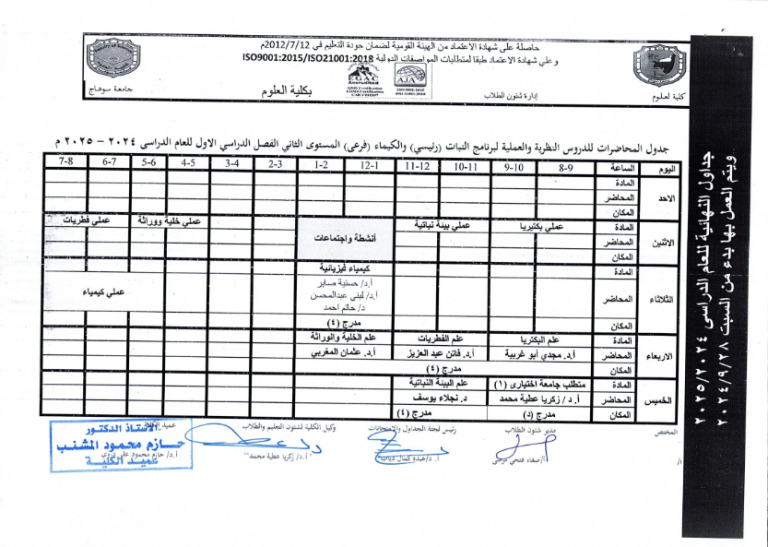 حاصلة على شهادة الاعتماد من الهيئة القومية لضمان جودة التعليم في 2012/7/12م
وعلى شهادة الاعتماد طبقا لمتطلبات المواصفات الدولية ISO9001:2015/ISO21001:2018
EGAC
AJA
جامعة سوهاج
بكلية العلوم
إدارة شئون الطلاب
كلية العلوم
جدول المحاضرات للدروس النظرية والعملية لبرنامج النبات (رئيسي) والكيمياء (فرعى) المستوى الثاني الفصل الدراسي الاول للعام الدراسى ٢٠٢٤ – ٢٠٢٥ م
اليوم الساعة 8-9 9-10 10-11 11-12 12-1 1-2 2-3 3-4 4-5 5-6 6-7 7-8
الاحد
المادة
المحاضر
المكان
الاثنين
المادة عملي بكتيريا عملي بيئة نباتية عملي خلية ووراثة عملي فطريات
المحاضر أنشطة واجتماعات
المكان
الثلاثاء
المادة كيمياء فيزيائية
المحاضر د/ حسنية صابر
أ.د/ لبنى عبدالمحسن
د/ حاتم احمد
عملي كيمياء
المكان مدرج (٤)
الاربعاء
المادة علم البكتريا علم الفطريات علم الخلية والوراثة
المحاضر أ.د. مجدي أبو غربية أ.د. فاتن عبد العزيز أ.د. عثمان المغربي
المكان مدرج (٤)
الخميس
المادة متطلب جامعة اختيارى (١) علم البيئة النباتية
المحاضر أ.د / زكريا عطية محمد د. نجلاء يوسف
المكان مدرج (د) مدرج (٤)
المختص
مدير شئون الطلاب
رئيس لجنة الجداول والامتحانات
وكيل الكلية لشئون التعليم والطلاب
عميد
أ/
أ.د/ زكريا عطية محمد
الأستاذ الدكتور
حازم محمود المشنب
عميد الكلية
جداول النهائية للعام الدراسى ٢٠٢٥/٢٠٢٤
ويتم العمل بها بدء من السبت ٢٠٢٤/٩/٢٨